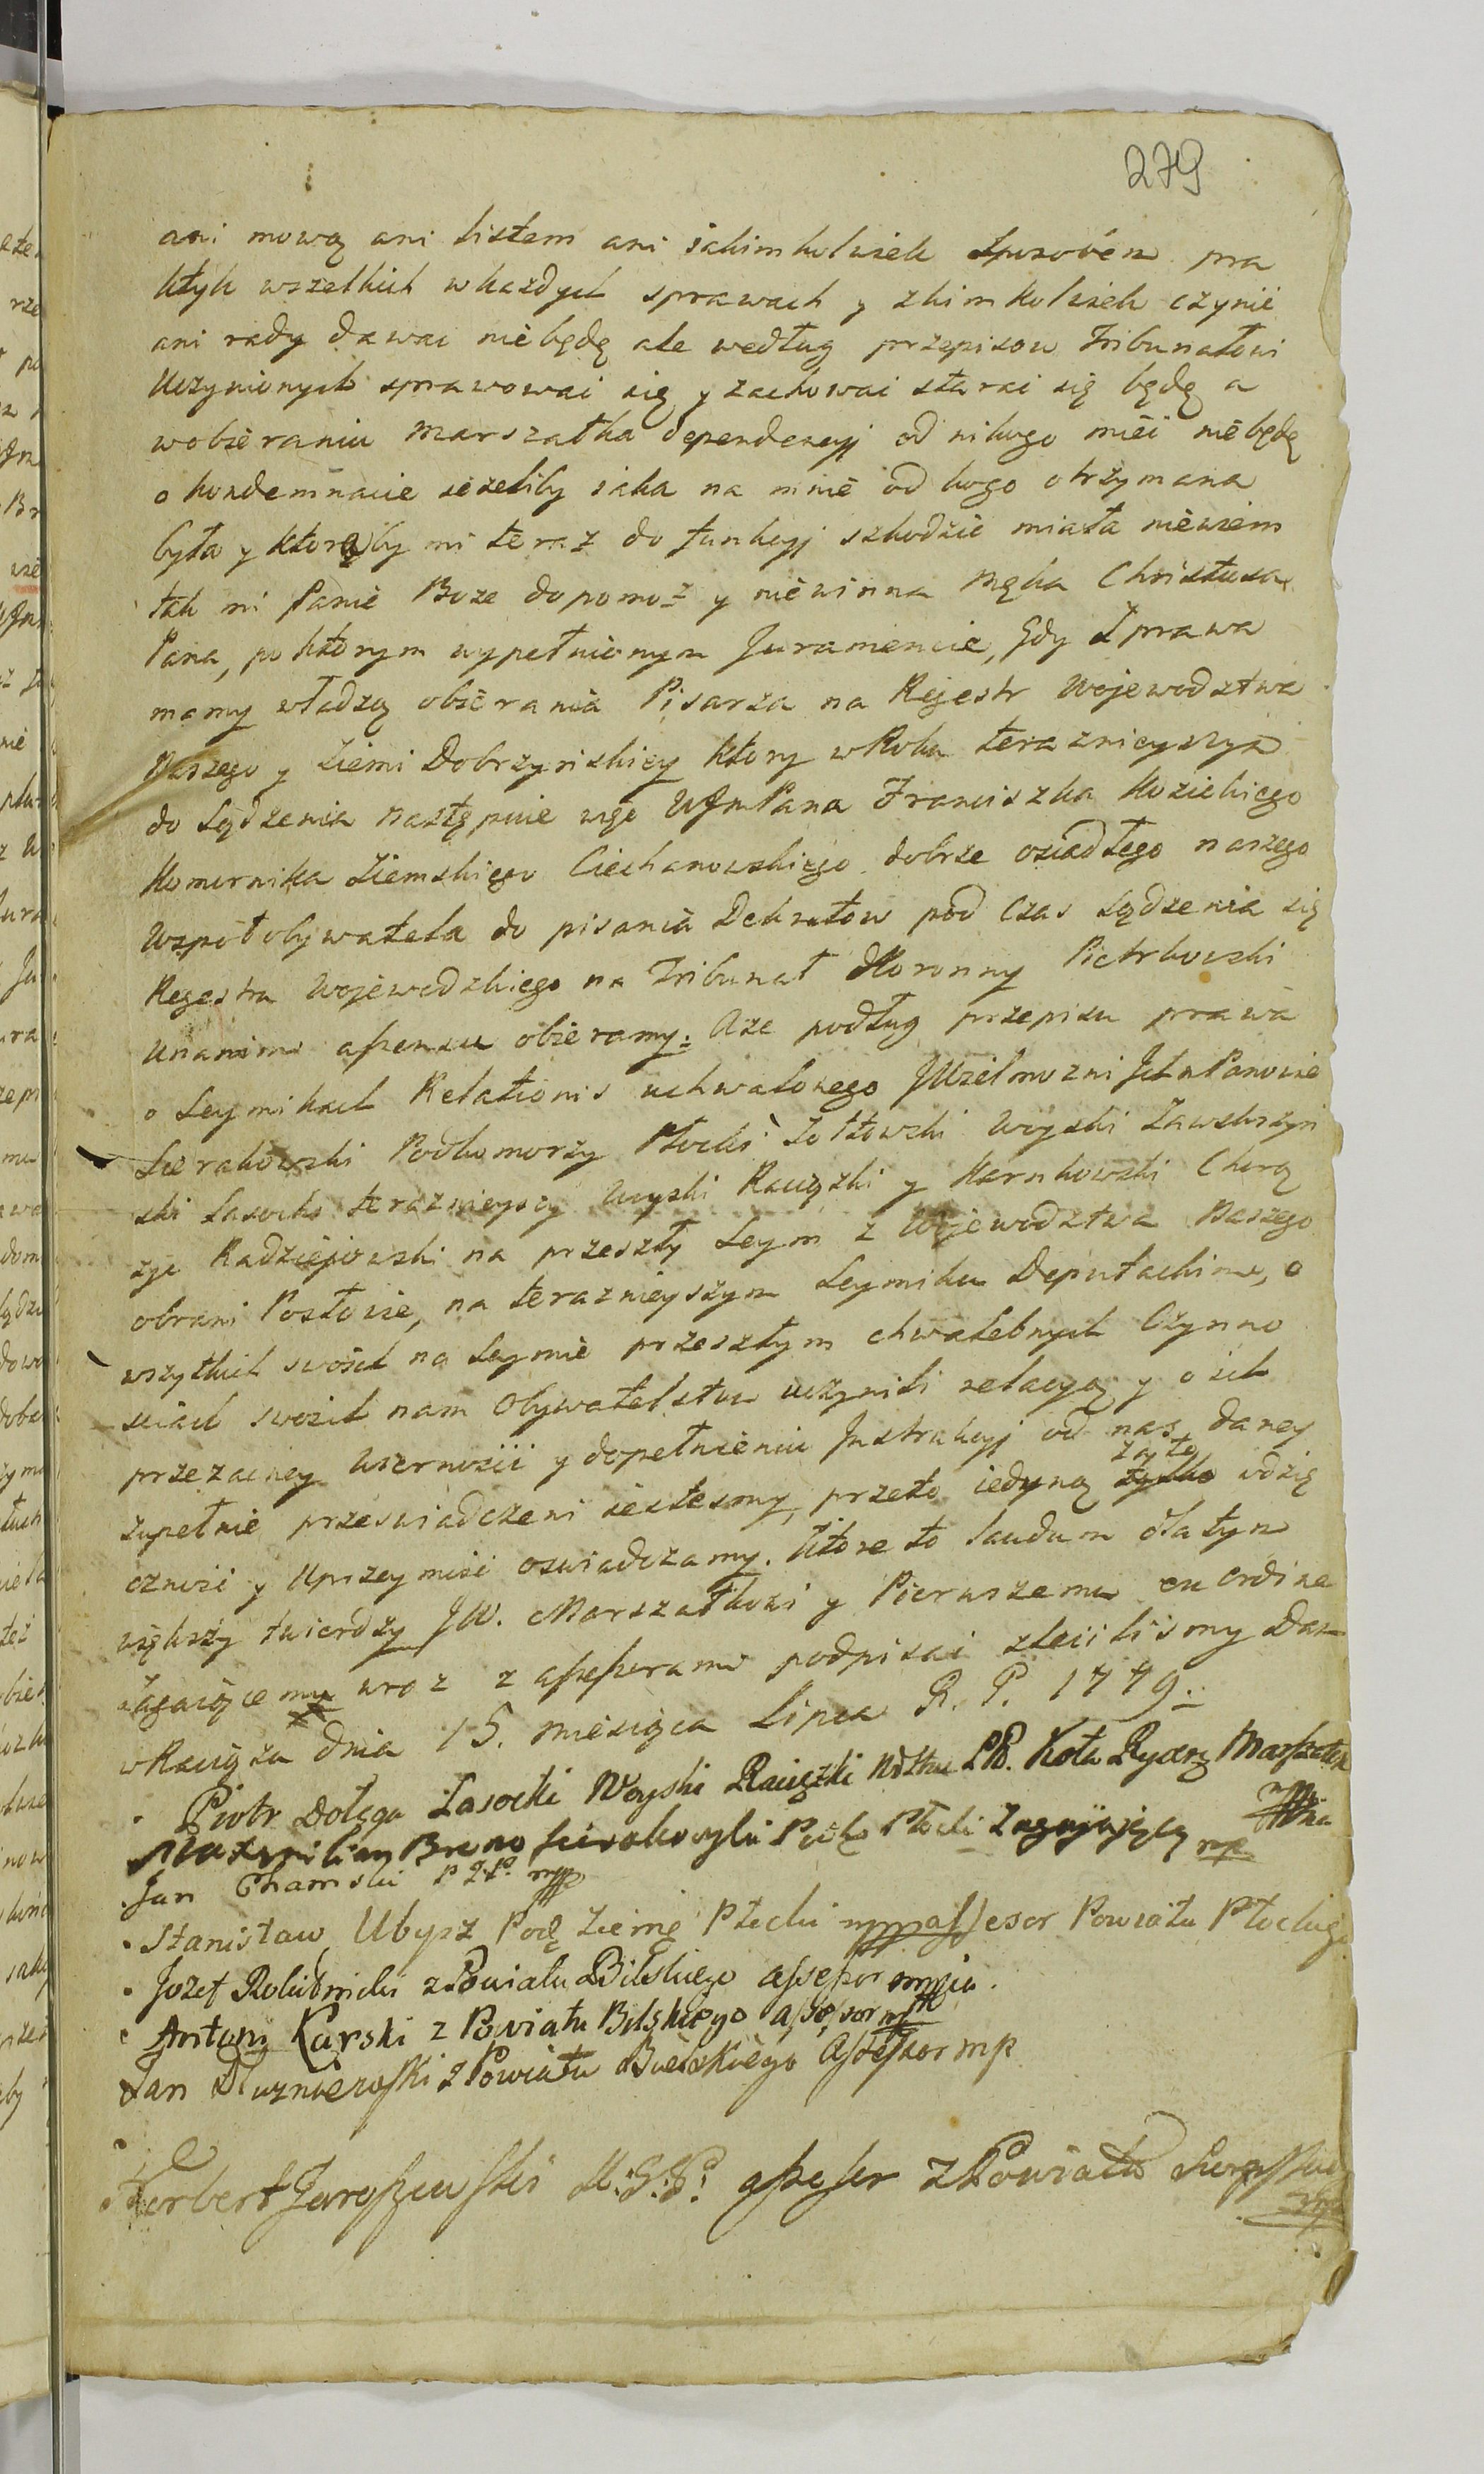 279
ani mową ani listem ani iakimkolwiek Sposobem pra
ktyk wszelkich w kazdych sprawach y zkimkolwiek czynić
ani rady dawać niebędę ale według przepisow Tribunałowi
Uczynionych sprawować się y zachować starać się będę a
wobieraniu Marszałka dependencyj od nikogo mieć niebędę
o kondemnacie iezeliby iaka na mnie od kogo otrzymana
była y ktoraby mi teraz do funkcyj szkodzić miała niewiem
tak mi Panie Boze dopomoz y niewinna Męka Christusa
Pana, po ktorym wypełnionym Juramencie, Gdy z prawa
mamy władzą obierania Pisarza na Rejestr Wojewodztwa
Naszego y Ziemi Dobrzynskiey ktory w Roku teraznieyszym
do Sądzenia następuie więc WJm Pana Franciszka Kozickiego
Komornika Ziemskiego Ciechanowskiego dobrze osiadłego naszego
Wspołobywatela do pisania Dekretow pod czas Sądzenia się
Regestru Wojewodzkiego na Tribunał Koronny Piotrkowski
Unanimi assensu obieramy. A ze podług przepisu prawa
o Seymikach Relationis uchwalonego JWielmozni Ich m Panowie
Sierakowski Podkomorzy Płocki Zołtowski Woyski Zawskrzyn
ski Lasocki teraznieyszy Woyski Raciązki y Karnkowski Chorą
zyc Radziejowski na przeszły Seym z Wojewodztwa Naszego
obrani Posłowie, na teraznieyszym Seymiku Deputackim, o
wszytkich swoich na Seymie przeszłym chwalebnych Czynno
sciach swoich nam Obywatelstwu uczynili relacyą y o ich
przezacney Wiernosci y dopełnieniu Instrukcyj od nas daney
zupełnie przeswiadczeni iestesmy, przeto iedyną za to wdzię
cznosć y Uprzeymosć oswiadczamy. Ktore to laudum dla tym
większy twierdzy JW. Marszałkowi y Pierwszemu in ordine
zagaiącemu wraz z assessorami podpisać zlecilismy Dan
w Raciązu dnia 15. miesiąca Lipca R. P. 1779.
Piotr Dołęga Lasocki Woyski Raciązki Koła Rycerz Marszałek
Maxymilian Bruno Sierakowski Podko Płocki Zagajający mp
Jan Chamski mpp
Stanisław Ubysz Podę Ziemę Płocki mp assesor Powiatu Płockiego
Jozef Rolibnicki z Powiatu Bilskiego assessor mpia.
Antoni Karski z Powiatu Bilskiego assessor mp
Jan Dłuzniewski z Powiatu Bielskiego Assessor mp
Norbert Jaroszewski M: G: P: assesor z Powiatu Sierpskie
mp